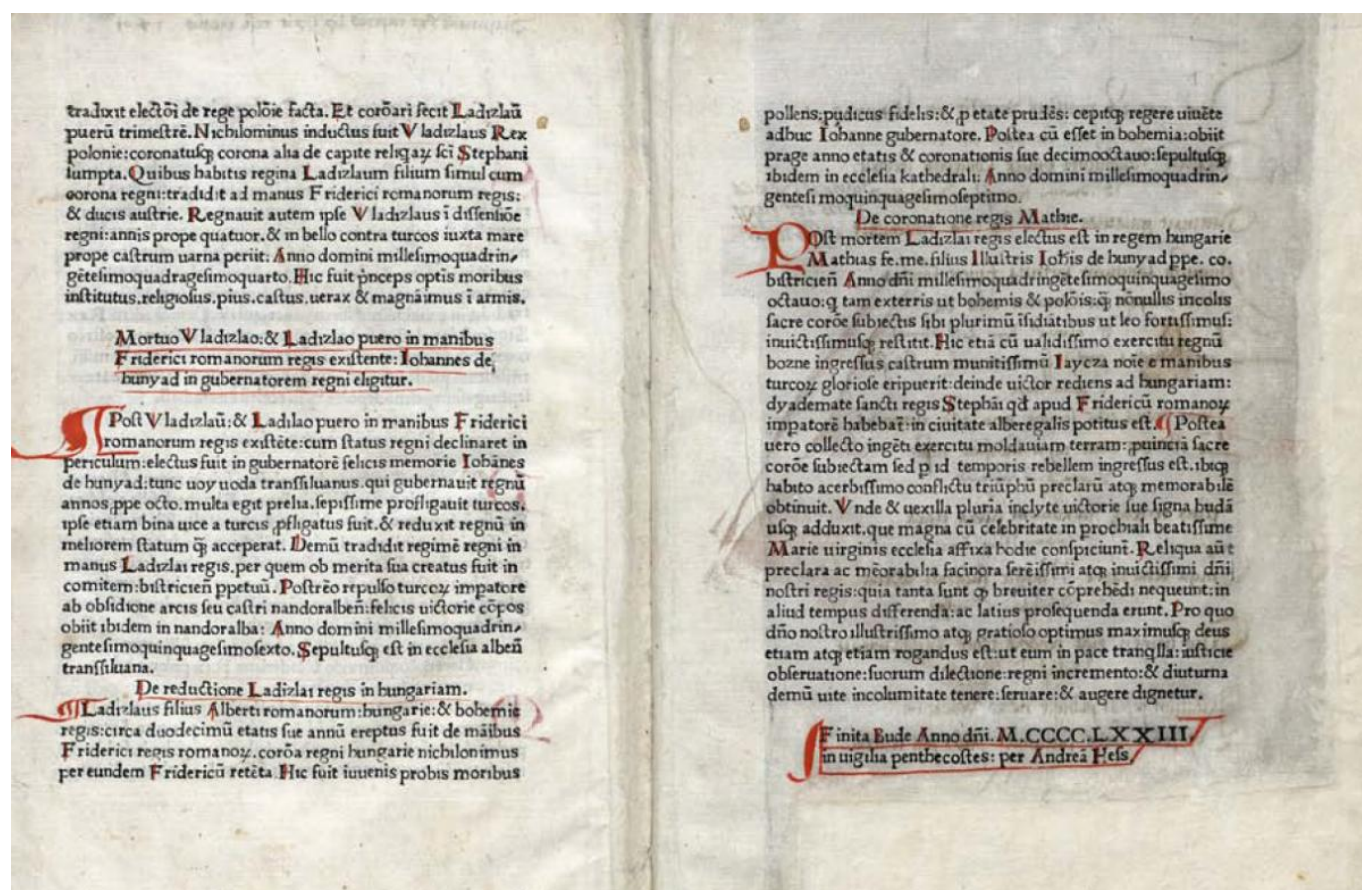 traduxit electōi de rege polōie facta. Et corōari fecit Ladizlaū
puerū trimestrē. Nichilominus inductus fuit Vladizlaus Rex
polonie: coronatusqꝫ corona alia de capite reliqaꝝ sci Stephani
sumpta. Quibus habitis regina Ladizlaum filium simul cum
corona regni: tradidit ad manus Friderici romanorum regis:
& ducis austrie. Regnauit autem ipse Vladizlaus ī dissensiōe
regni: annis prope quatuor. & in bello contra turcos iuxta mare
prope castrum uarna periit: Anno domini millesimoquadrin-
gētesimoquadragesimoquarto. Hic fuit pͥnceps optīs moribus
institutus. religiosus. pius. castus. uerax & magnāimus ī armis.
Mortuo Vladizlao: & Ladizlao puero in manibus
Friderici romanorum regis existente: Iohannes de
hunyad in gubernatorem regni eligitur.
Post Vladizlaū: & Ladilao puero in manibus Friderici
romanorum regis existēte: cum status regni declinaret in
periculum: electus fuit in gubernatorē felicis memorie Iohānes
de hunyad: tunc uoyuoda transsiluanus. qui gubernauit regnū
annos ꝓpe octo. multa egit prelia. sepissime profligauit turcos.
ipse etiam bina uice a turcis ꝓfligatus fuit. & reduxit regnū in
meliorem statum q̄ꝫ acceperat. Demū tradidit regimē regni in
manus Ladizlai regis. per quem ob merita sua creatus fuit in
comitem: bistricien̄ ꝑpetuū. Postrēo repulso turcoꝝ imꝑatore
ab obsidione arcis seu castri nandoralben̄: felicis uictorie cōpos
obiit ibidem in nandoralba: Anno domini millesimoquadrin-
gentesimoquinquagesimosexto. Sepultusqꝫ est in ecclesia alben̄
transsiluana.
De reductione Ladizlai regis in hungariam.
Ladizlaus filius Alberti romanorum: hungarie: & bohemie
regis: circa duodecimū etatis sue annū ereptus fuit de māibus
Friderici regis romanoꝝ. corōa regni hungarie nichilonimus
per eundem Fridericū retēta. Hic fuit iuuenis probis moribus
pollens: pudicus fidelis: & ꝓ etate prudēs: cepitqꝫ regere uiuēte
adhuc Iohanne gubernatore. Postea cū esset in bohemia: obiit
prage anno etatis & coronationis sue decimooctauo: sepultusqꝫ
ibidem in ecclesia kathedrali: Anno domini millesimoquadrin-
gentesimoquinquagesimoseptimo.
De coronatione regis Mathie.
Post mortem Ladizlai regis electus est in regem hungarie
Mathias fe. me. filius Illustris Ioh̄is de hunyad ꝑpe. co.
bistricien̄ Anno dn̄i millesimoquadringētesimoquinquagesimo
octauo: q tam exterris ut bohemis & polōis: q̄ꝫ nōnullis incolis
sacre corōe subiectis sibi plurimū īsidiātibus ut leo fortissimus:
inuictissimusqꝫ restitit. Hic etiā cū ualidissimo exercitu regnū
bozne ingressus castrum munitissimū Iaycza noīe e manibus
turcoꝝ gloriose eripuerit: deinde uictor rediens ad hungariam:
dyademate sancti regis Stephāi qd̄ apud Fridericū romanoꝝ
impatorē habebat̄: in ciuitate alberegalis potitus est. ¶ Postea
uero collecto ingēti exercitu moldauiam terram: ꝓuinciā sacre
corōe subiectam sed ꝓ id temporis rebellem ingressus est. ibiqꝫ
habito acerbissimo conflictu triūphū preclarū atqꝫ memorabilē
obtinuit. Vnde & uexilla pluria inclyte uictorie sue signa budā
usqꝫ adduxit. que magna cū celebritate in prochiali beatissime
Marie uirginis ecclesia affixa hodie conspiciunt̄. Reliqua aūt
preclara ac mēorabilia facinora serēissimi atqꝫ inuictissimi dn̄i
nostri regis: quia tanta sunt ꝙ breuiter cōprehēdi nequeunt: in
aliud tempus differenda: ac latius prosequenda erunt. Pro quo
dn̄o nostro illustrissimo atqꝫ gratioso optimus maximusqꝫ deus
etiam atqꝫ etiam rogandus est: ut eum in pace tranqͥlla: iusticie
obseruatione: suorum dilectione: regni incremento: & diuturna
demū uite incolumitate tenere: seruare: & augere dignetur.
Finita Bude Anno dn̄i. M.CCCC.LXXIII.
in uigilia penthecostes: per Andreā Hess.